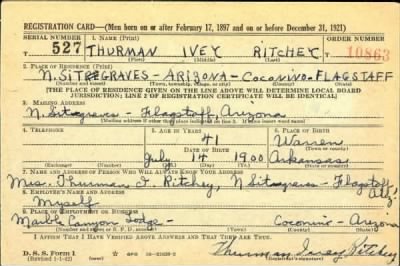 REGISTRATION CARD—(Men born on or after February 17, 1897 and on or before December 31, 1921)
SERIAL NUMBER 1. NAME (Print) ORDER NUMBER
527 THURMAN IVEY RITCHEY 10863
(First) (Middle) (Last)
2. PLACE OF RESIDENCE (Print)
N. SITGREAVES - ARIZONA - COCONINO - FLAGSTAFF
[THE PLACE OF RESIDENCE GIVEN ON THE LINE ABOVE WILL DETERMINE LOCAL BOARD
JURISDICTION; LINE 2 OF REGISTRATION CERTIFICATE WILL BE IDENTICAL]
3. MAILING ADDRESS
N. Sitgreaves - Flagstaff, Arizona
4. TELEPHONE 5. AGE IN YEARS 6. PLACE OF BIRTH
41 Warren
DATE OF BIRTH
July 14 1900 Arkansas
7. NAME AND ADDRESS OF PERSON WHO WILL ALWAYS KNOW YOUR ADDRESS
Mrs. Thurman I. Ritchey, N Sitgreaves - Flagstaff, Ariz.
8. EMPLOYER'S NAME AND ADDRESS
Myself
9. PLACE OF EMPLOYMENT OR BUSINESS
Marble Canyon Lodge - Coconino - Arizona
I AFFIRM THAT I HAVE VERIFIED ABOVE ANSWERS AND THAT THEY ARE TRUE.
D. S. S. Form 1
(Revised 1-1-42) Thurman Ivey Ritchey